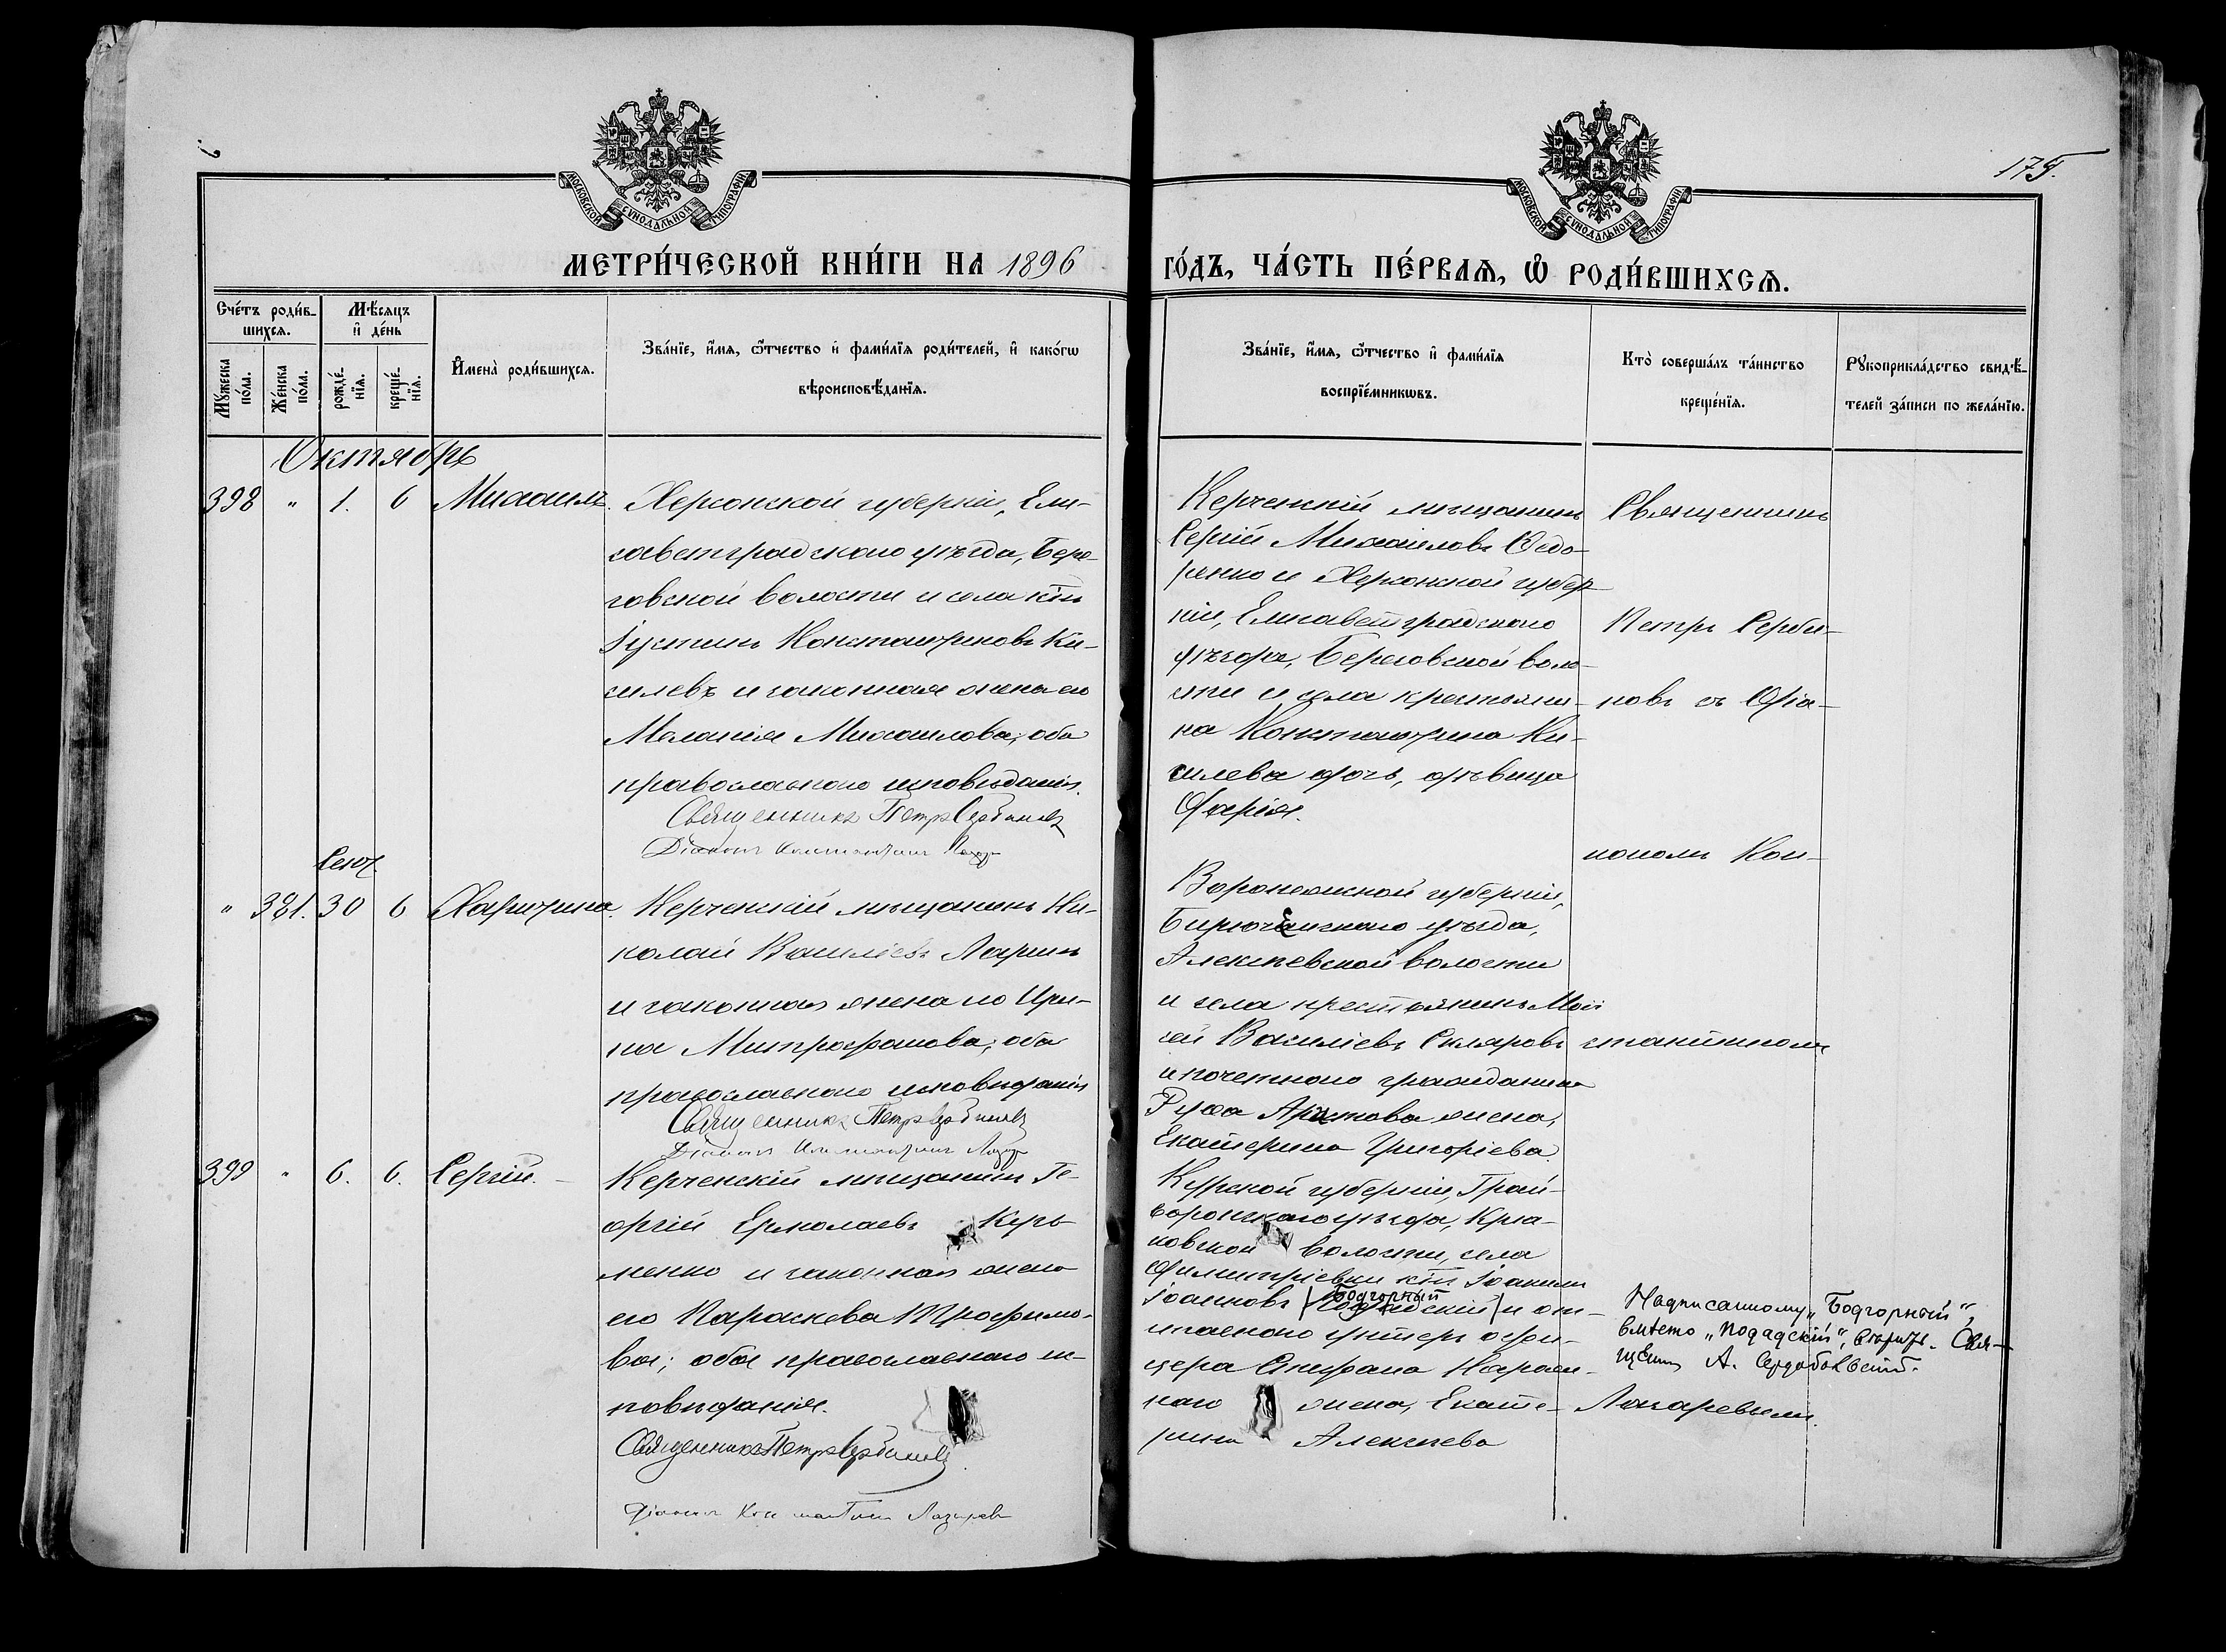 175.
МОСКОВСКОЙ СѴНОДАЛЬНОЙ ТИПОГРАФІИ
МОСКОВСКОЙ СѴНОДАЛЬНОЙ ТИПОГРАФІИ
МЕТРИ́ЧЕСКОЙ КНИ́ГИ НА 1896
ГО́ДЪ, ЧА́СТЬ ПЕ́РВАѦ, Ѡ҆ РОДИ́ВШИХСѦ.
Сче́тъ роди́в-
шихсѧ.
Мꙋ́жеска по́ла.
Же́нска по́ла.
Мѣ́сѧцъ
и҆ де́нь
рожде́-нїѧ.
креще́-нїѧ.
И҆мена̀ роди́вшихсѧ.
Зва́нїе, и҆́мѧ, ѻ҆́тчество и҆ фами́лїѧ роди́телей, и҆ како́гѡ
вѣроисповѣ́данїѧ.
Зва́нїе, и҆́мѧ, ѻ҆́тчество и҆ фами́лїѧ
воспрїе́мникѡвъ.
Кто̀ соверша́лъ та́инство
креще́нїѧ.
Рꙋкоприкла́дство свидѣ́-
телей за́писи по жела́нїю.
Октябрь
398 " 1. 6 Михаилъ.
Херсонской губерніи, Ели-
саветградскаго уѣзда, Бере-
говской волости и села кр̃нъ
Іустинъ Константиновъ Ки-
силевъ и законная жена его
Меланія Михаилова; оба
православнаго исповѣданія.
Священникъ Петръ Сербиновъ
Діаконъ Константинъ Лазарев
Керченскій мѣщанинъ
Сергій Михаиловъ Ѳедо-
ренко и Херсонской губер-
ніи, Елисаветградскаго
уѣзда, Береговской воло-
сти и села крестьяни-
на Константина Ки-
силева дочь, дѣвица
Дарія.
Священникъ
Петръ Серби-
новъ съ Діа-
кономъ Кон-
стантиномъ
Лазаревымъ.
Сент.
" 381. 30 6 Харитина.
Керченскій мѣщанинъ Ни-
колай Василіевъ Ларинъ
и законная жена его Ири-
на Митрофанова; оба
православнаго исповѣданія
Священникъ Петръ Сербиновъ
Діаконъ Константинъ Лазарев
Воронежской губерніи,
Бирюченскаго уѣзда,
Алексѣевской волости
и села крестьянинъ Мои-
сей Василіевъ Скляровъ
и почетнаго гражданина
Екатерина Григоріева.
399 " 6. 6. Сергій.
Керченскій мѣщанинъ Ге-
оргій Ермолаевъ Кузь-
менко и законная жена
его Параскева Трофимо-
ва; оба православнаго ис-
повѣданія.
Священникъ Петръ Сербиновъ
Діаконъ Константинъ Лазарев
Курской губерніи, Грай-
воронскаго уѣзда, Крю-
ковской волости, села
Димитріевки кр̃нъ Іоаннъ
Бодгорный
Іоанновъ (Подадскій) и от-
ставнаго унтеръ офи-
цера Стефана
наго жена, Екате-
рина Алексѣева
Надписанному „Бодгорный",
вмѣсто „Подадскій", вѣрить. Свя-
щенн. А. Сердобольскій.